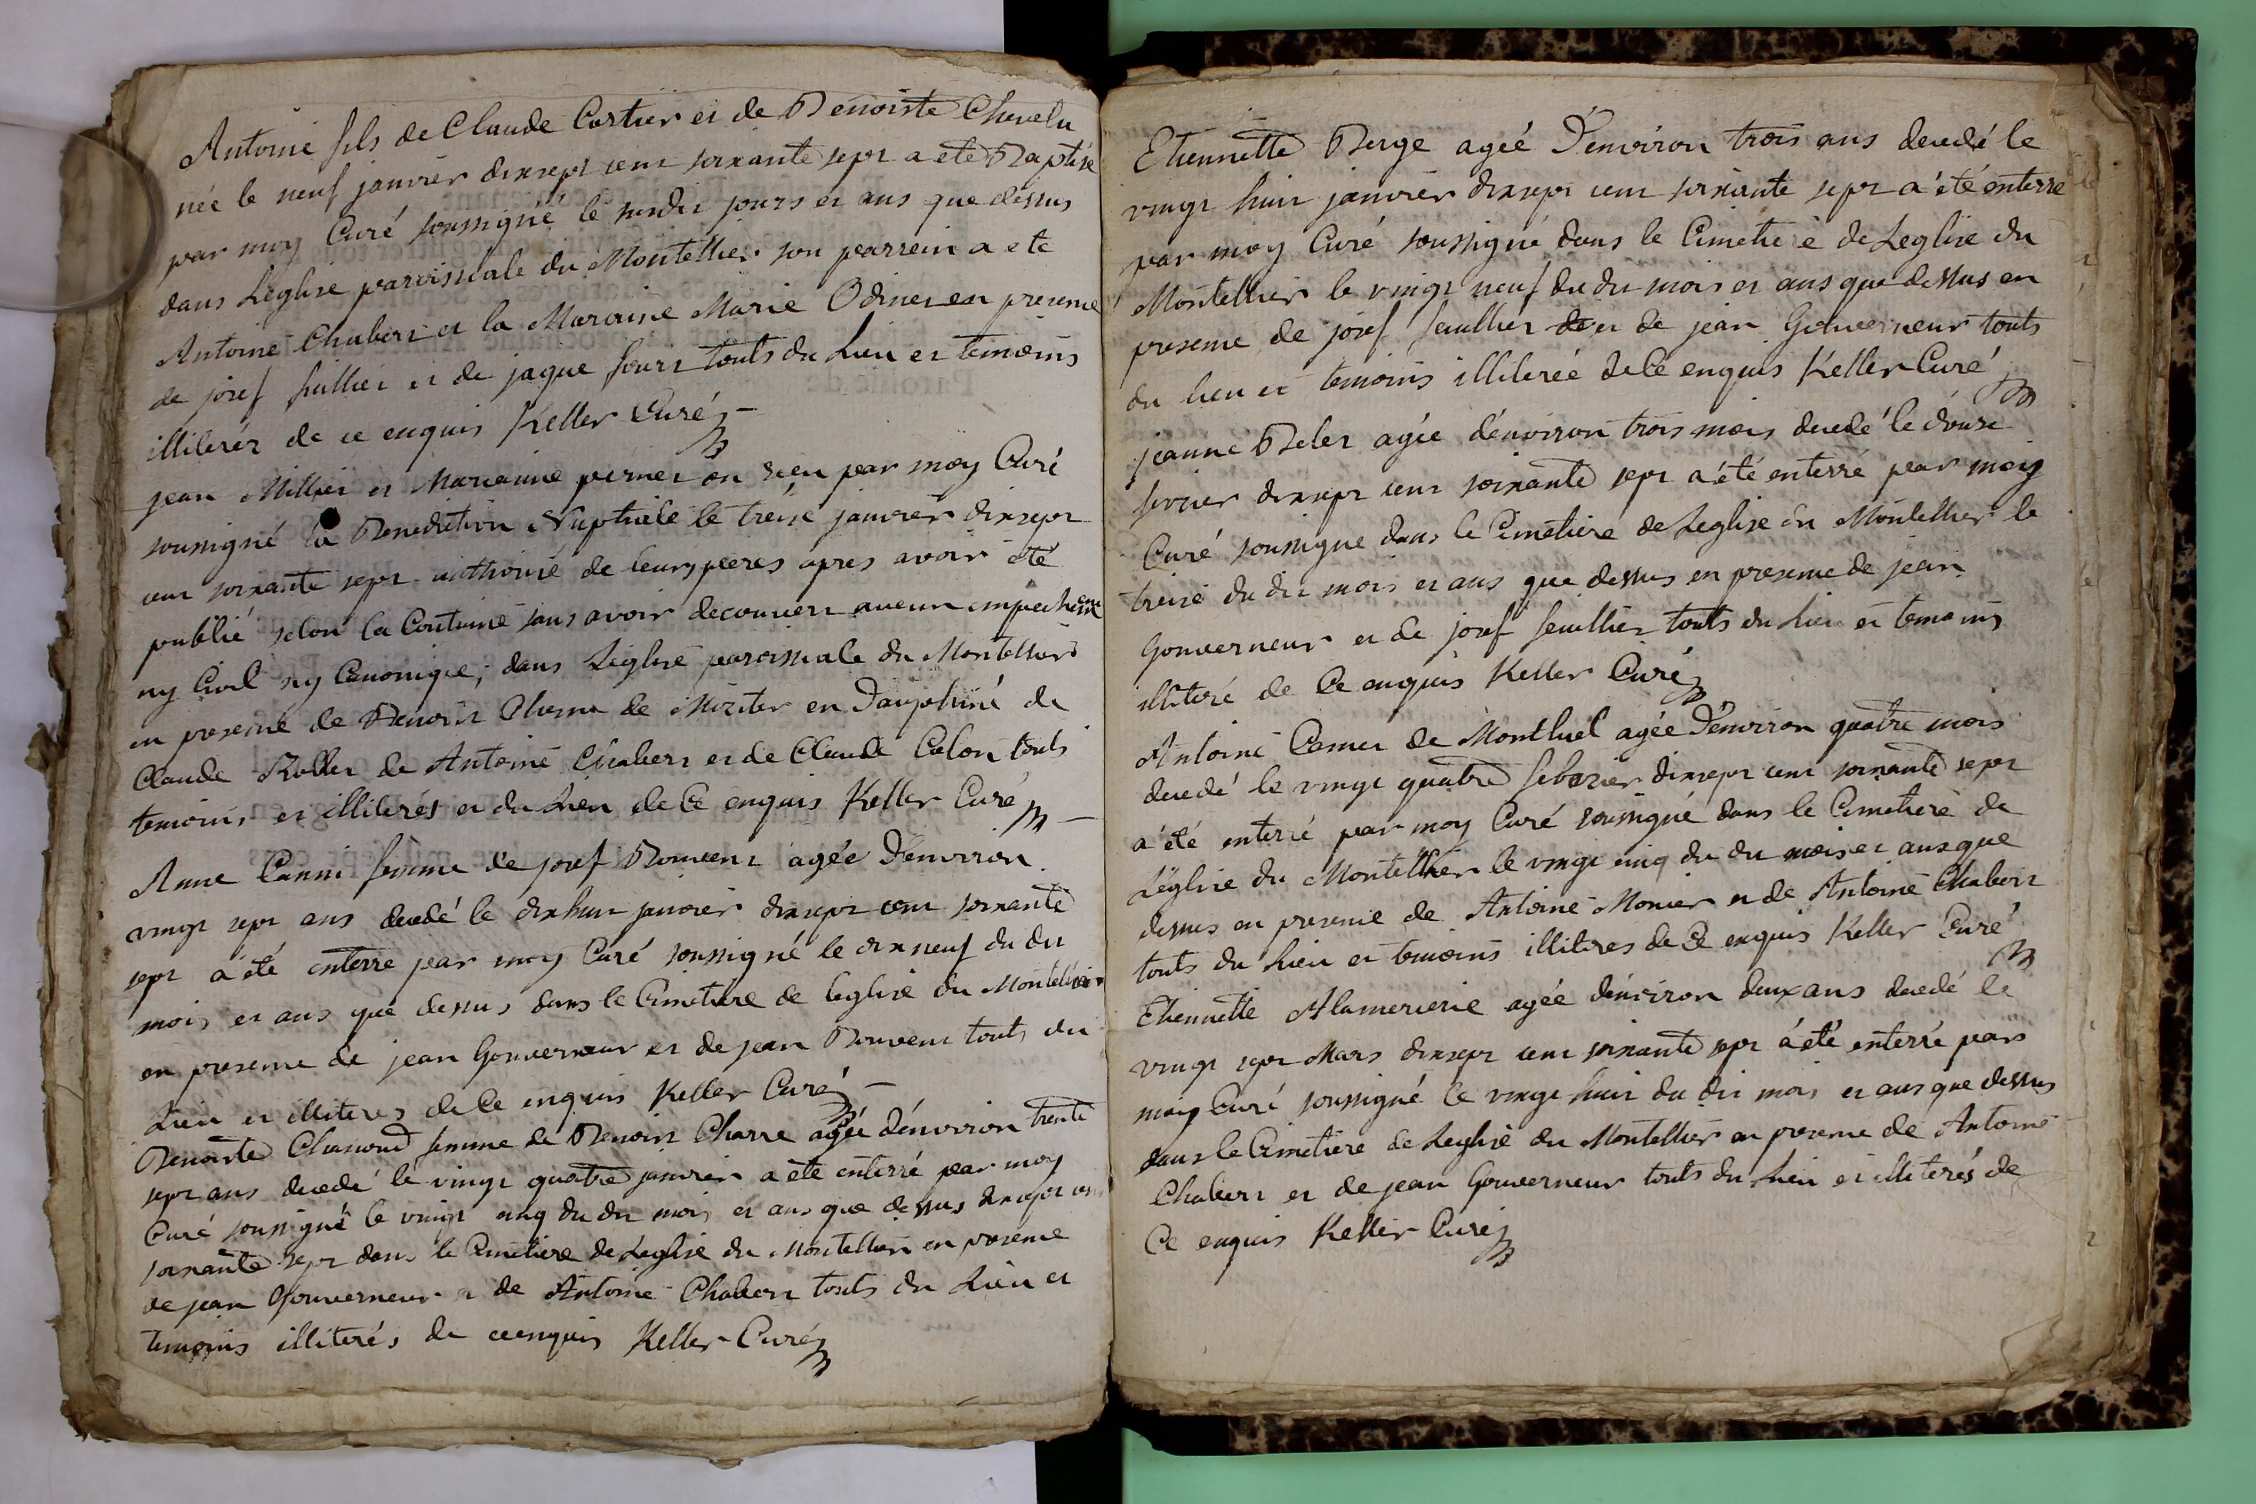 Antoine fils de Claude Cartier et de Benoiste Chevelu
née le neuf janvier dixsept cent soixante sept a ete Baptisé
par moy Curé soussigné le susdit jours et ans que dessus
dans Leglise paroissiale du Montellier son parrein a ete
Antoine Chabert et la Maraine Marie Odinet en presence
de josef fullier et de jaque touts du Lieu et temoins
illiterés de ce enquis Keller Curé
jean Millier et Marianne pernet on reçu par moy Curé
soussigné la Benediction Nuptiale le treise janvier dixsept
cent soixante sept authorisé de leurs peres apres avoir été
publié selon la Coutume sans avoir decouvert aucun empechement
ny Civil ny Canonique; dans Leglise paroissiale du Montellier
en presence de Benoist de en Dauphiné de
Claude Rollet de Antoine Chabert et de Claude Colon touts
temoins et illiterés et du Lieu de Ce enquis Keller Curé
Anne Canni femme de josef Bouvent agée D'environ
vingt sept ans decedé le dixhuit janvier dixsept cent soixante
sept a été enterre par moy Curé soussigné le dixneuf du dit
mois et ans que dessus dans le Cimetiere de leglise du Montellier
en presence de jean Gouverneur et de jean Bouvent touts du
Lieu et illiteres de Ce enquis Keller Curé
Benoiste femme de Benoist Charre agée d'environ trente
sept ans decedé le vingt quatre janvier a été enterré par moy
Curé soussigné le vingt cinq du dit mois et ans que dessus dixsept cent
soixante sept dans le Cimetiere de Leglise du Montellier en presence
de jean Gouverneur et de Antoine Chabert touts du Lieu et
temoins illiterés de ce enquis Keller Curé
Etiennette Berge agéé D'environ trois ans decedé le
vingt huit janvier dixsept cent soixante sept a été enterré
par moy Curé soussigné dans le Cimetiere de Leglise du
Montellier le vingt neuf du dit mois et ans que dessus en
presence de josef feullier de et de jean Gouverneur touts
du lieu et temoins illiterée de Ce enquis Keller Curé
jeanne Belet agée d'environ trois mois decedé le douse
fevrier dixsept cent soixante sept a été enterré par moy
Curé soussigne dans le Cimetiere de Leglise du Montellier le
treise du dit mois et ans que dessus en presence de jean
Gouverneur et de josef feullier touts du Lieu et temoins
illiteré de Ce enquis Keller Curé
Antoine de Montluel agée D'environ quatre mois
decedé le vingt quatre febvrier dixsept cent soixante sept
a été enterré par moy Curé soussigné dans le Cimetiere de
Léglise du Montellier le vingt cinq du dit mois et ans que
dessus en presence de Antoine Monier et de Antoine Chabert
touts du Lieu et temoins illiteres de Ce enquis Keller Curé
Etiennette Alamercerie agée d'environ deux ans decedé le
vingt sept Mars dixsept cent soixante sept a été enterré par
moy Curé soussigné le vingt huit du dit mois et ans que dessus
dans le Cimetiere de Leglise du Montellier en presence de Antoine
Chabert et de jean Gouverneur touts du Lieu et illiterés de
Ce enquis Keller Curé